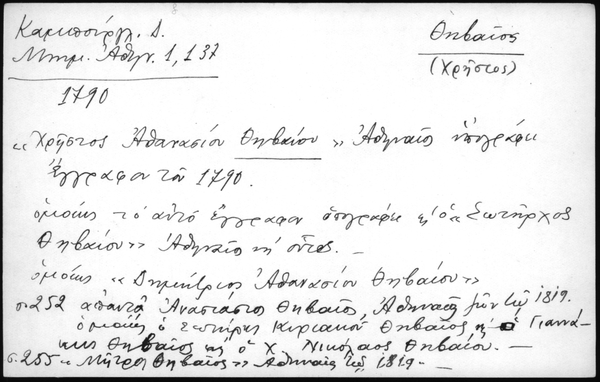 Καμπούρογλ. Δ.
Μνημ. Ἀθην. 1, 137
1790
Θηβαῖος
(Χρῆστος)
«Χρῆστος Ἀθανασίου Θηβαίου» Ἀθηναῖος ὑπογράφει
ἔγγραφον τοῦ 1790.
ὁμοίως τὸ αὐτὸ ἔγγραφον ὑπογράφει κ' ὁ «Σωτήρχος
Θηβαίου» Ἀθηναῖος κ' οὗτος. —
ὁμοίως «Δημήτριος Ἀθανασίου Θηβαίου»
σ. 252 ἀπαντᾷ Ἀναστάσιος Θηβαῖος, Ἀθηναῖος ζῶν τῷ 1819.
ὁμοίως ὁ Σωτήρης Κυριακοῦ Θηβαῖος κ' ὁ Γιαννά-
κης Θηβαῖος κ' ὁ Χ Νικόλαος Θηβαίου. —
σ. 255 «Μῆτρος Θηβαῖος» Ἀθηναῖος τῷ 1819. —